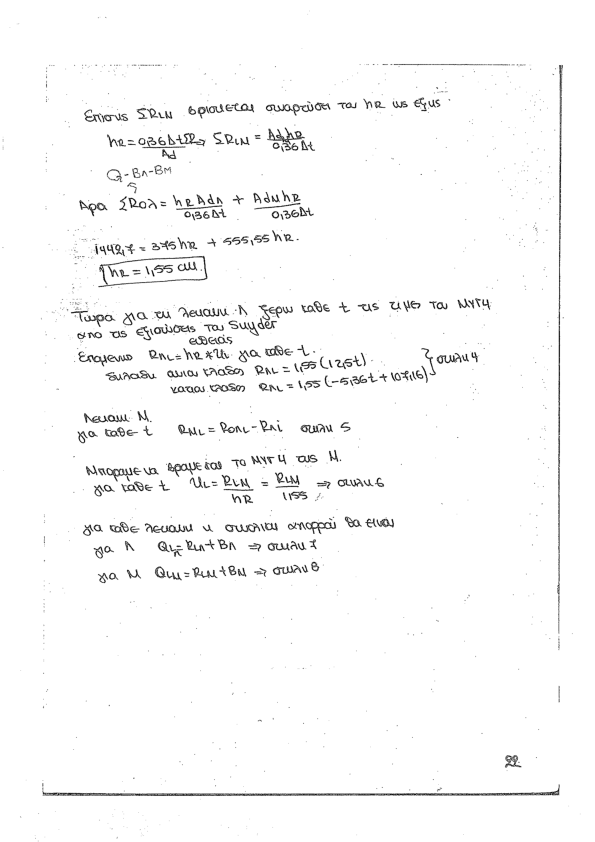 Επίσης ΣRLM βρίσκεται συναρτήσει του hR ως εξής
hR = 0,36ΔtΣR/Ad ⇒ ΣRLM = Ad hR/0,36Δt
Q - BΛ - BM
Άρα ΣRολ = hR AdΛ/0,36Δt + AdM hR/0,36Δt
1442,7 = 375 hR + 555,55 hR.
hR = 1,55 cm.
Τώρα για τη λεκάνη Λ ξέρω κάθε t τις τιμές του ΜΥΓ4
από τις εξισώσεις του Snyder
ευθείες
Επομένως RΛL = hR * UL για κάθε t.
δηλαδή ανιον κλάδος RΛL = 1,55 (12,5t)
κατιον κλάδος RΛL = 1,55 (-5,36t + 107,16) } στήλη 4
Λεκάνη Μ.
για κάθε t RML = RολL - RΛi στήλη 5
Μπορούμε να βρούμε και το ΜΥΓ4 της Μ.
για κάθε t UL = RLM/hR = RLM/1,55 ⇒ στήλη 6
για κάθε λεκάνη η συνολική απορροή θα είναι
για Λ QLΛ = RLΛ + BΛ ⇒ στήλη 7
για Μ QLM = RLM + BM ⇒ στήλη 8
22